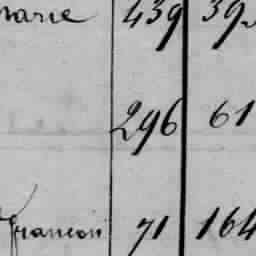 marie 439 39
296 61
francon 71 164